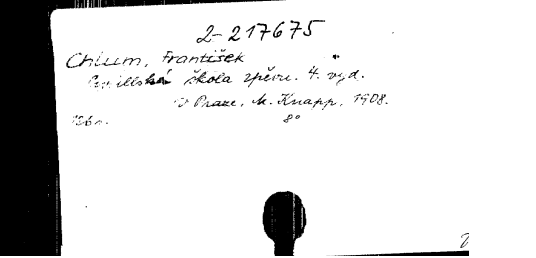 2-217675
Chlum, František
Cecillská škola zpěvu. 4. vyd.
V Praze, M. Knapp, 1908.
136 s. 8°